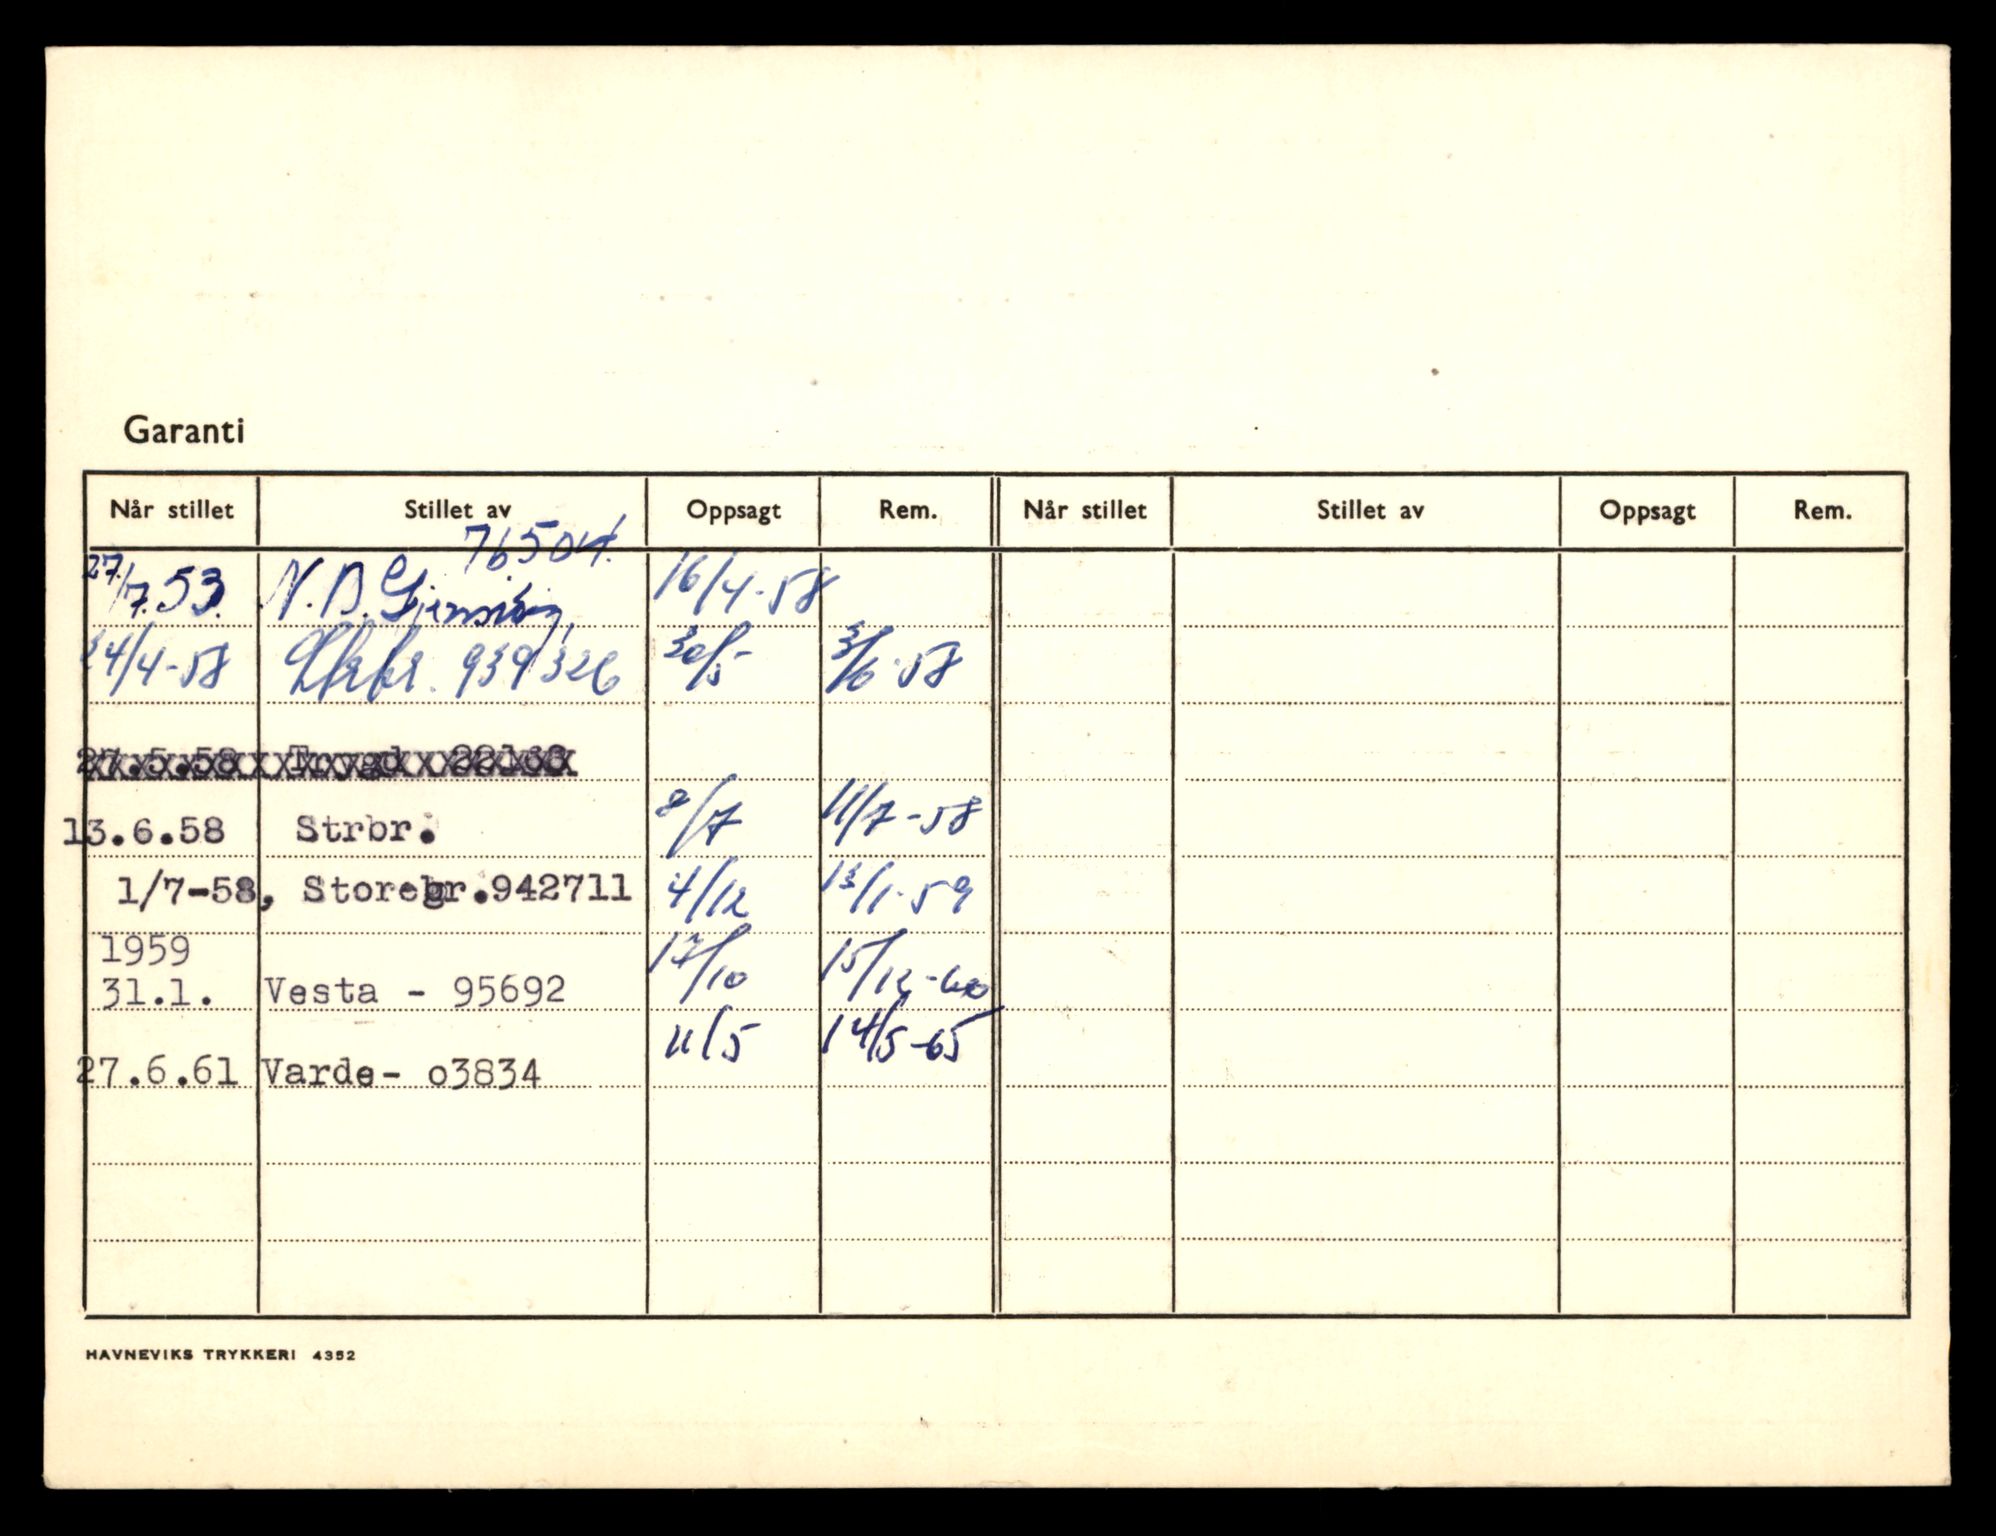 Garanti
Når stillet Stillet av Oppsagt Rem. Når stillet Stillet av Oppsagt Rem.
76504.
27./7.53. N.B. 16/4-58
24/4-58 939326 30/5- 3/6-58
27.5.58 Trygd
13.6.58 Strbr. 8/7 11/7-58
1/7-58, Storebr.942711 4/12 13/1-59
1959
31.1. Vesta - 95692 17/10 15/12-60
27.6.61 Varde- o3834 11/5 14/5-65
HAVNEVIKS TRYKKERI 4352